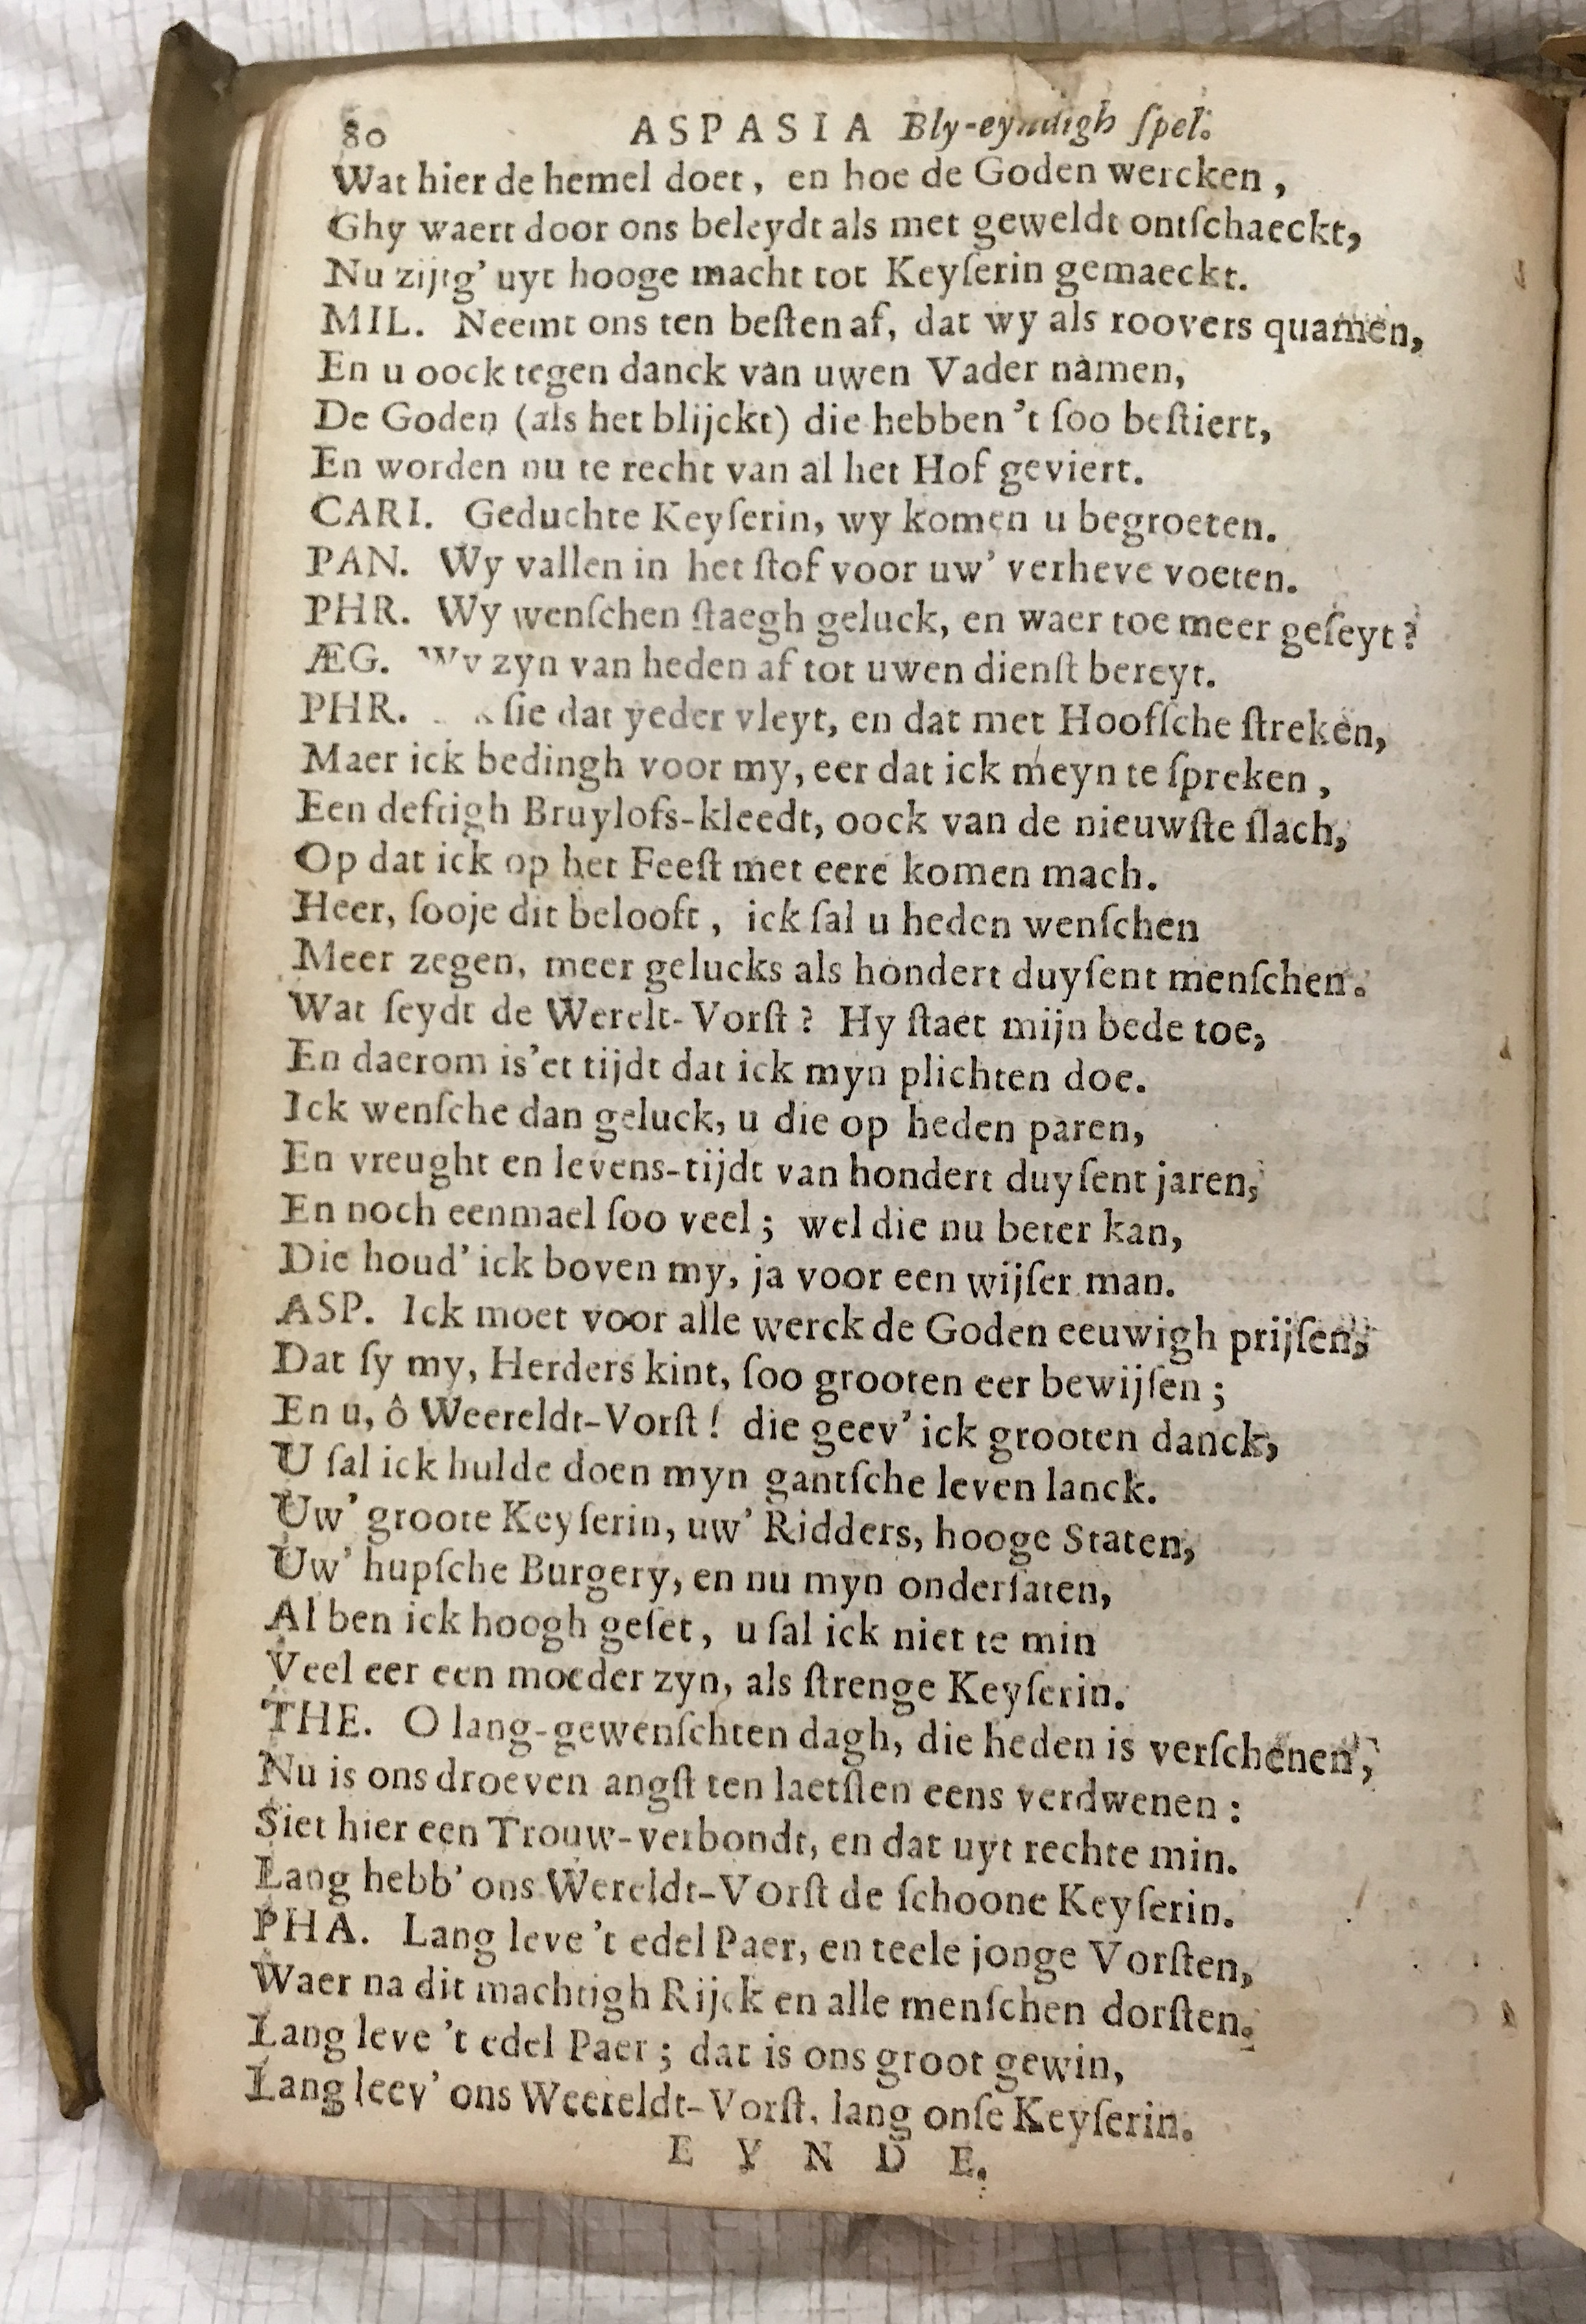 80 ASPASIA Bly-eyndigh ſpel.
Wat hier de hemel doet, en hoe de Goden wercken,
Ghy waert door ons beleydt als met geweldt ontſchaeckt,
Nu zijtg' uyt hooge macht tot Keyſerin gemaeckt.
MIL. Neemt ons ten beſten af, dat wy als roovers quamen,
En u oock tegen danck van uwen Vader namen,
De Goden (als het blijckt) die hebben 't ſoo beſtiert,
En worden nu te recht van al het Hof geviert.
CARI. Geduchte Keyſerin, wy komen u begroeten.
PAN. Wy vallen in het ſtof voor uw' verheve voeten.
PHR. Wy wenſchen ſtaegh geluck, en waer toe meer geſeyt?
ÆG. Wy zyn van heden af tot uwen dienſt bereyt.
PHR. ſie dat yeder vleyt, en dat met Hoofſche ſtreken,
Maer ick bedingh voor my, eer dat ick meyn te ſpreken,
Een deftigh Bruylofs-kleedt, oock van de nieuwſte ſlach,
Op dat ick op het Feeſt met eere komen mach.
Heer, ſooje dit belooft, ick ſal u heden wenſchen
Meer zegen, meer gelucks als hondert duyſent menſchen.
Wat ſeydt de Werelt-Vorſt? Hy ſtaet mijn bede toe,
En daerom is'et tijdt dat ick myn plichten doe.
Ick wenſche dan geluck, u die op heden paren,
En vreught en levens-tijdt van hondert duyſent jaren,
En noch eenmael ſoo veel; wel die nu beter kan,
Die houd' ick boven my, ja voor een wijſer man.
ASP. Ick moet voor alle werck de Goden eeuwigh prijſen,
Dat ſy my, Herders kint, ſoo grooten eer bewijſen;
En u, ô Weereldt-Vorſt! die geev' ick grooten danck,
U ſal ick hulde doen myn gantſche leven lanck.
Uw' groote Keyſerin, uw' Ridders, hooge Staten,
Uw' hupſche Burgery, en nu myn onderſaten,
Al ben ick hoogh geſet, u ſal ick niet te min
Veel eer een moeder zyn, als ſtrenge Keyſerin.
THE. O lang-gewenſchten dagh, die heden is verſchenen,
Nu is ons droeven angſt ten laetſten eens verdwenen:
Siet hier een Trouw-verbondt, en dat uyt rechte min.
Lang hebb' ons Wereldt-Vorſt de ſchoone Keyſerin.
PHA. Lang leve 't edel Paer, en teele jonge Vorſten,
Waer na dit machtigh Rijck en alle menſchen dorſten.
Lang leve 't edel Paer; dat is ons groot gewin,
Lang leev' ons Weereldt-Vorſt, lang onſe Keyſerin.
EYNDE.